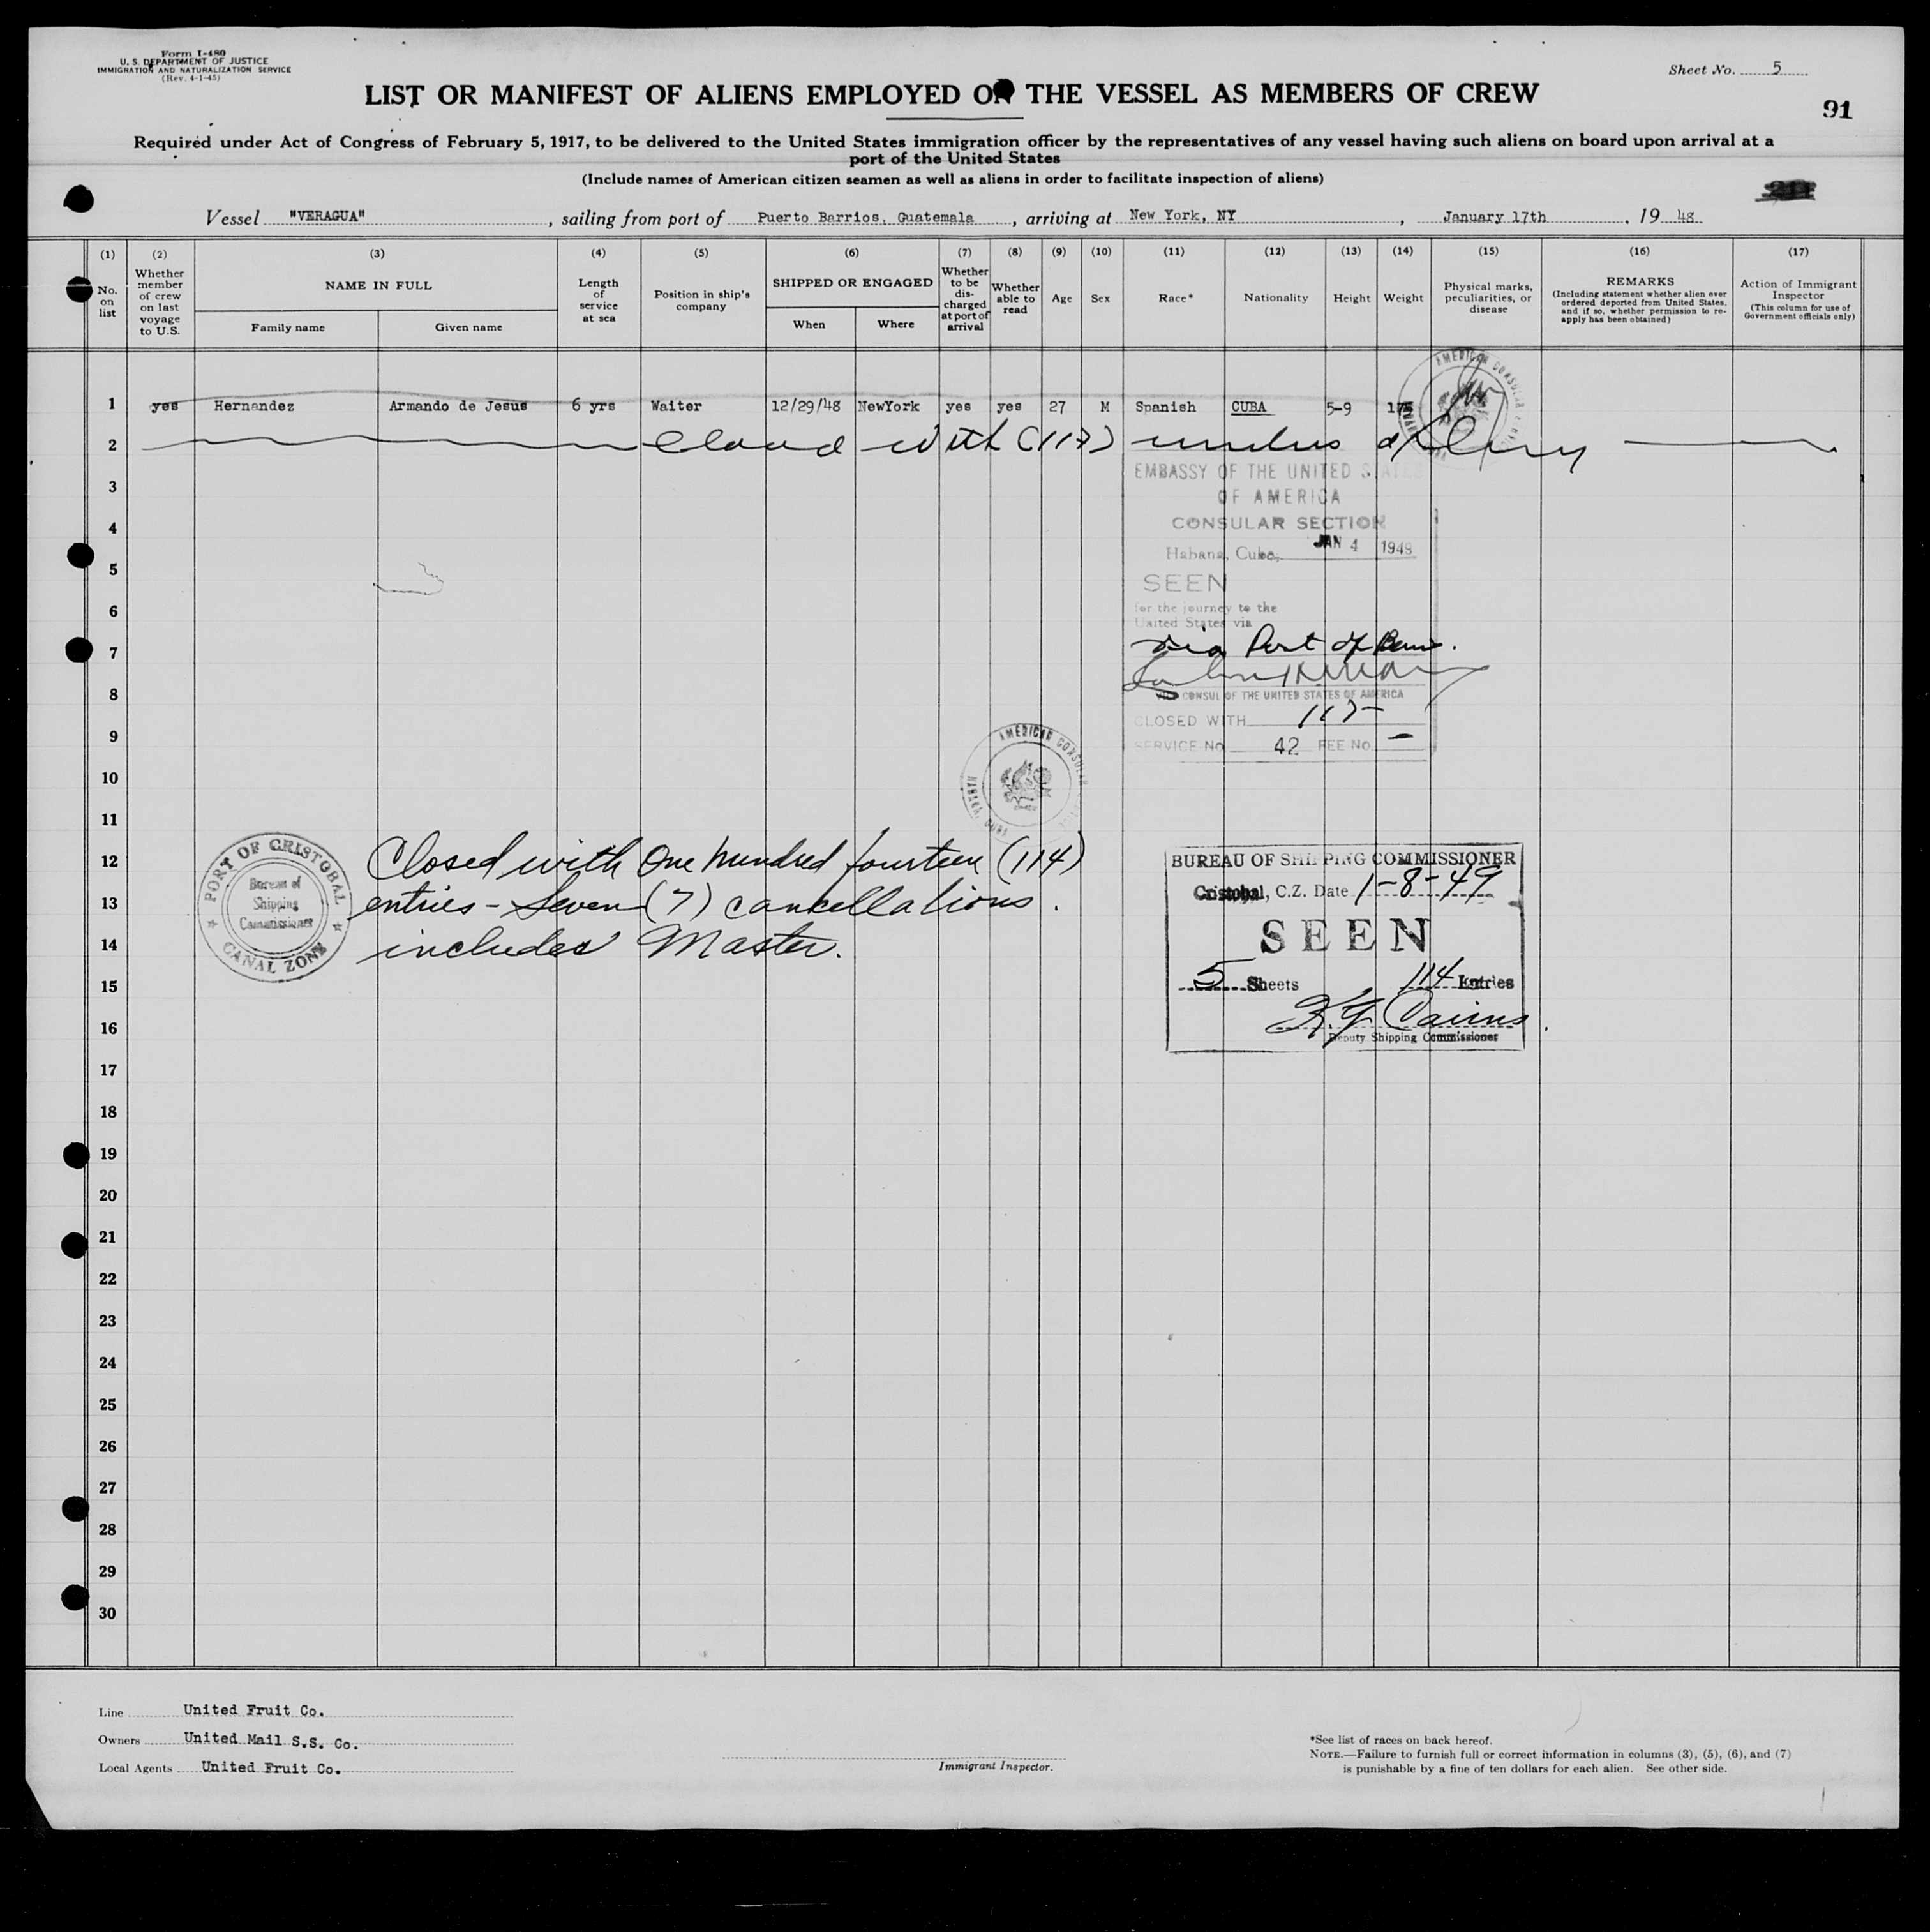 Form I-480
U. S. DEPARTMENT OF JUSTICE
IMMIGRATION AND NATURALIZATION SERVICE
(Rev. 4-1-45)
Sheet No. 5
LIST OR MANIFEST OF ALIENS EMPLOYED ON THE VESSEL AS MEMBERS OF CREW
91
Required under Act of Congress of February 5, 1917, to be delivered to the United States immigration officer by the representatives of any vessel having such aliens on board upon arrival at a
port of the United States
(Include names of American citizen seamen as well as aliens in order to facilitate inspection of aliens)
Vessel "VERAGUA", sailing from port of Puerto Barrios, Guatemala, arriving at New York, NY, January 17th, 19 48
(1) (2) (3) (4) (5) (6) (7) (8) (9) (10) (11) (12) (13) (14) (15) (16) (17)
No. on list
Whether member of crew on last voyage to U.S.
NAME IN FULL
Family name
Given name
Length of service at sea
Position in ship's company
SHIPPED OR ENGAGED
When
Where
Whether to be discharged at port of arrival
Whether able to read
Age
Sex
Race*
Nationality
Height
Weight
Physical marks, peculiarities, or disease
REMARKS
(Including statement whether alien ever ordered deported from United States, and if so, whether permission to re-apply has been obtained)
Action of Immigrant Inspector
(This column for use of Government officials only)
1 yes Hernandez Armando de Jesus 6 yrs Waiter 12/29/48 NewYork yes yes 27 M Spanish CUBA 5-9
2 with (117)
AMERICAN CONSULAR
EMBASSY OF THE UNITED STATES
OF AMERICA
3
CONSULAR SECTION
4
Habana, Cuba, JAN 4 1949
5
SEEN
6
for the journey to the
United States via
7
via Port of
8
CONSUL OF THE UNITED STATES OF AMERICA
CLOSED WITH 117
9
SERVICE No. 42 FEE No. —
AMERICAN CONSULAR
HABANA, CUBA
10
11
12 Closed with One hundred fourteen (114)
13 entries - Seven (7) cancellations.
14 includes Master.
PORT OF CRISTOBAL
Bureau of
Shipping
Commissioner
CANAL ZONE
BUREAU OF SHIPPING COMMISSIONER
Cristobal, C.Z. Date 1-8-49
SEEN
5 Sheets 114 Entries
Cairns
Deputy Shipping Commissioner
15
16
17
18
19
20
21
22
23
24
25
26
27
28
29
30
Line United Fruit Co.
Owners United Mail S.S. Co.
Local Agents United Fruit Co.
Immigrant Inspector.
*See list of races on back hereof.
NOTE.—Failure to furnish full or correct information in columns (3), (5), (6), and (7)
is punishable by a fine of ten dollars for each alien. See other side.